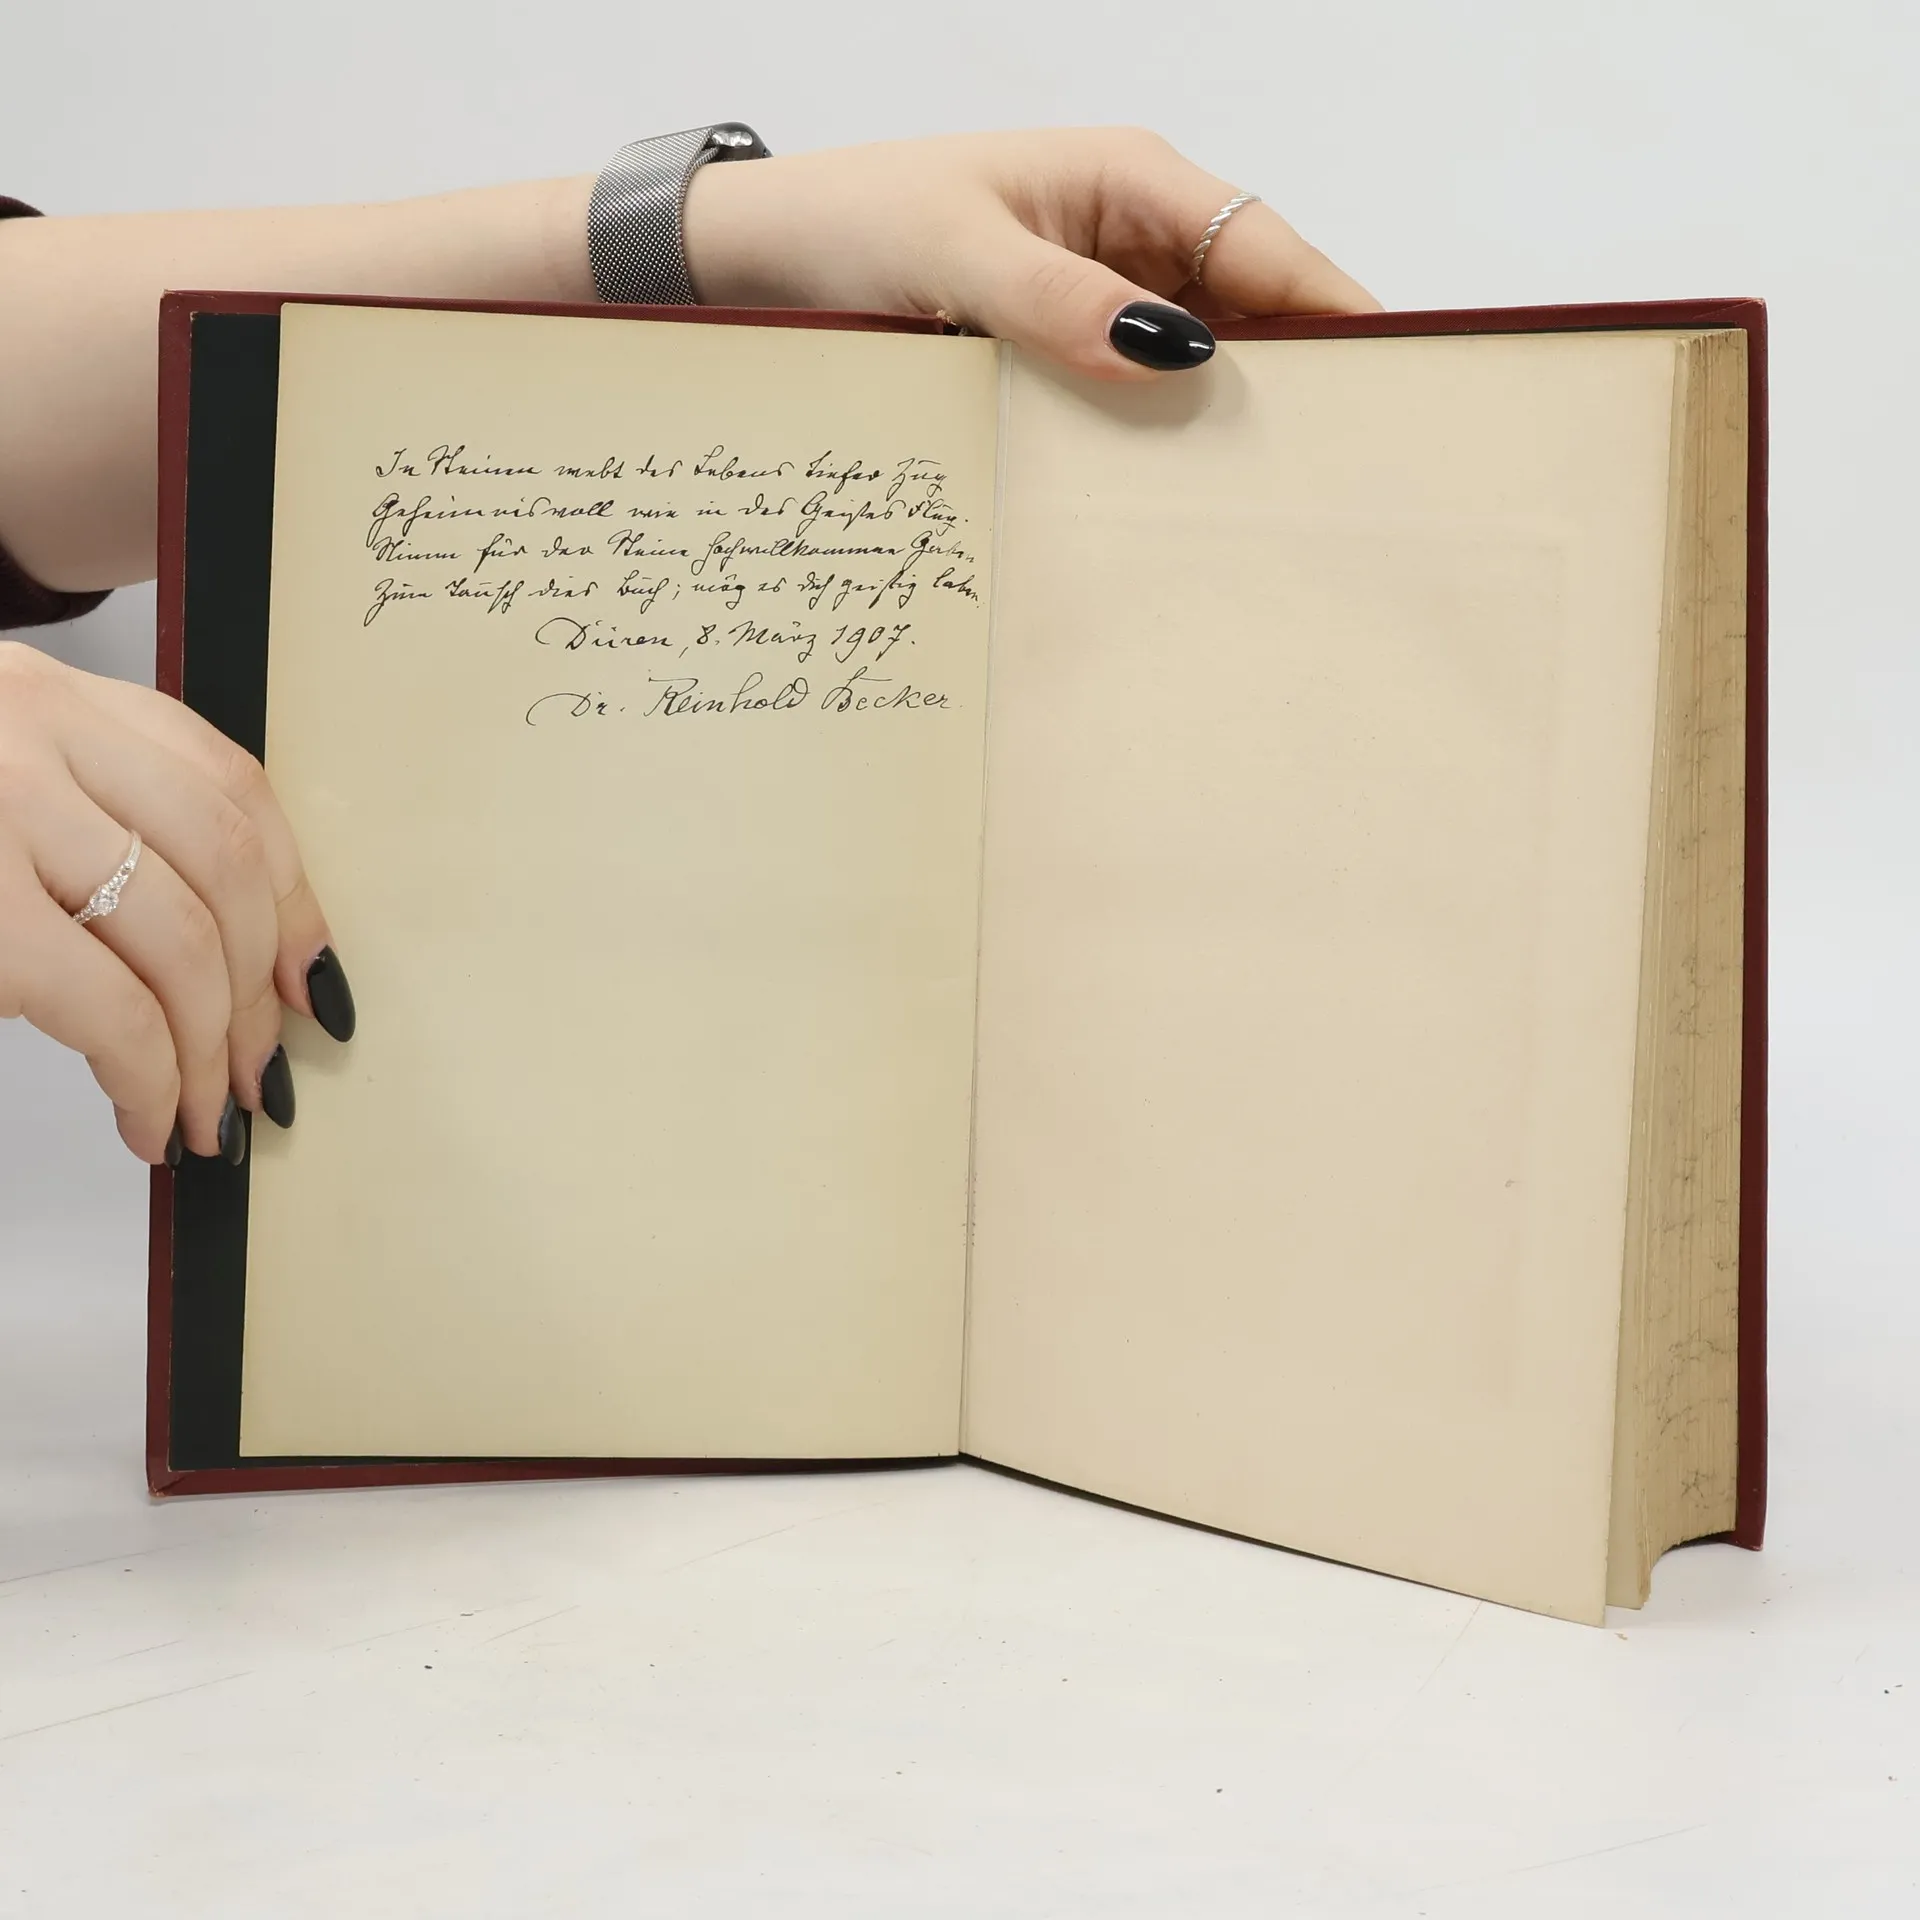 In Steinen webt des Lebens tiefer Zug
Geheimnisvoll wie in des Geistes Flug.
Nimm für der Steine hochwillkommne Gaben
Zum Tausch dies Buch; mög es dich geistig laben.
Düren, 8. März 1907.
Dr. Reinhold Becker.